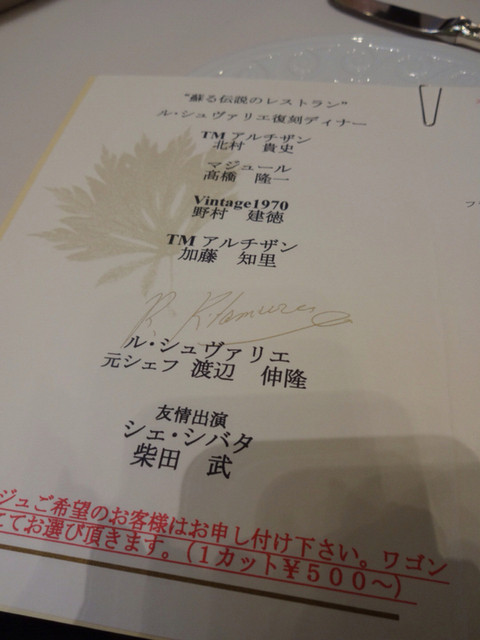 "蘇る伝説のレストラン"
ル・シュヴァリエ復刻ディナー
TM アルチザン
北村 貴史
マジュール
高橋 隆一
Vintage1970
野村 建徳
TM アルチザン
加藤 知里
ル・シュヴァリエ
元シェフ 渡辺 伸隆
友情出演
シェ・シバタ
柴田 武
ジュご希望のお客様はお申し付け下さい。ワゴン
てお選び頂きます。(1カット¥500~)